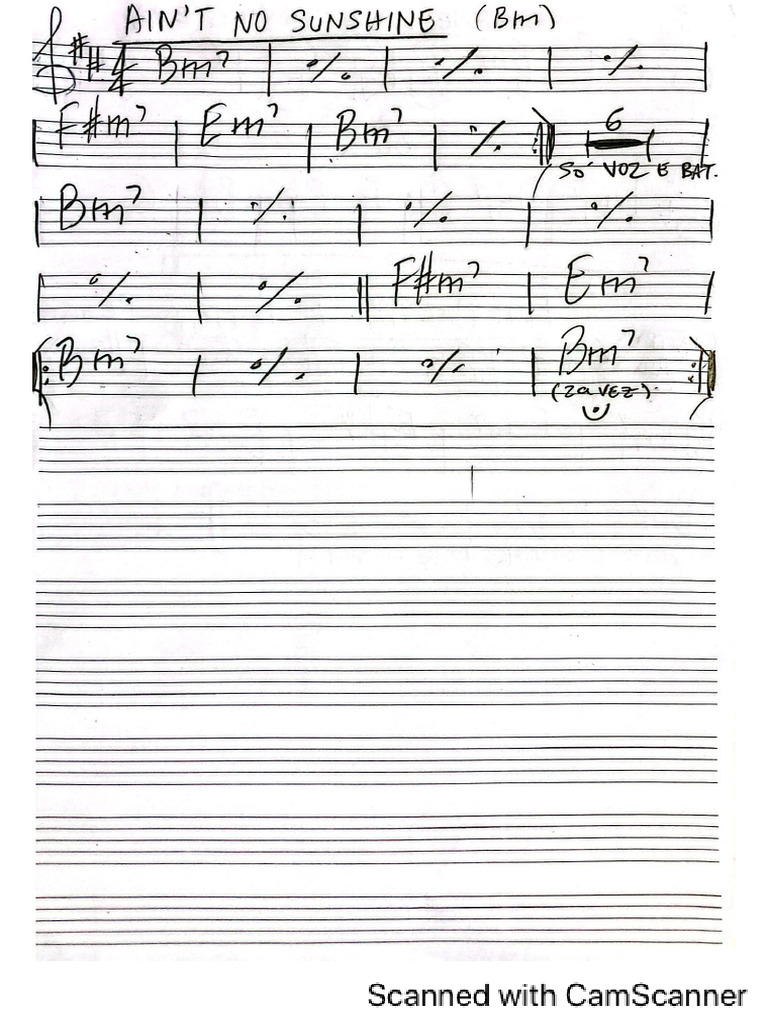 AIN'T NO SUNSHINE (Bm)
4/4 Bm7 | % | % | %
F#m7 | Em7 | Bm7 | % 6
SÓ VOZ E BAT.
Bm7 | % | % | %
% | % || F#m7 | Em7
Bm7 | % | % | Bm7
(2a VEZ)
Scanned with CamScanner